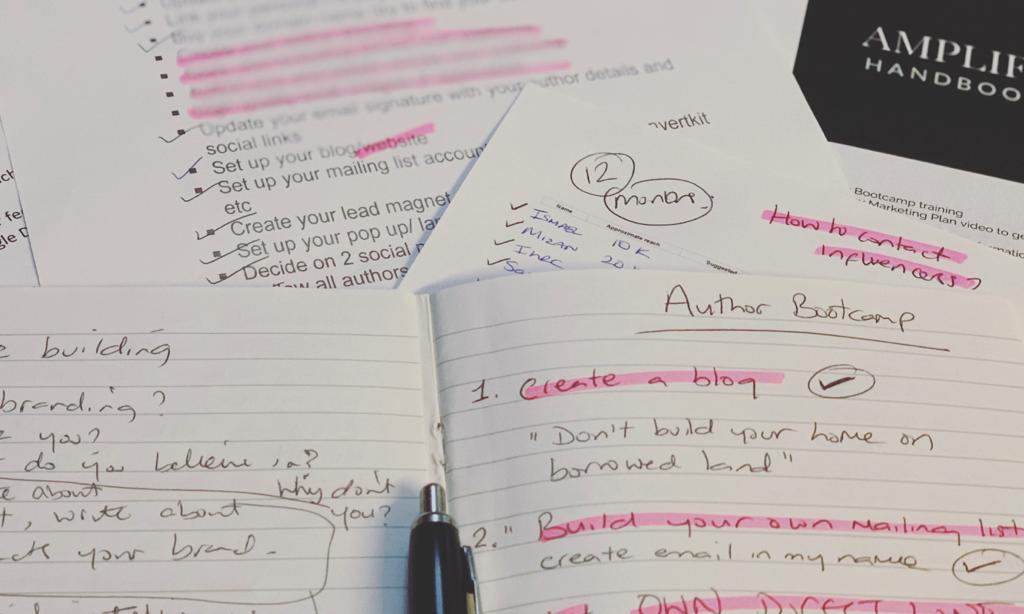 Update your email signature with your author details and
social links
Set up your blog/website
Set up your mailing list accoun
etc
Create your lead magnet
Set up your pop up/ lan
Decide on 2 social
all authors
vertkit
12
months
Name
Approximate reach
Ismael 10K
Mizan 20
AMPLIF
HANDBOO
Bootcamp training
Marketing Plan video to ge
How to contact
Influencers?
e building
branding?
you?
do you believe in?
e about
Why don't
you?
t, write about
your brand.
Author Bootcamp
1. Create a blog
"Don't build your home on
borrowed land"
2." Build your own mailing list
create email in my name
OWN DIRECT